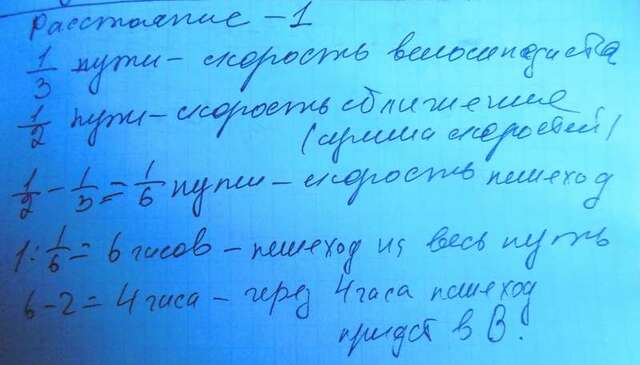 Расстояние - 1
1/3 пути - скорость велосипедиста
1/2 пути - скорость сближения
(сумма скоростей)
1/2 - 1/3 = 1/6 пути - скорость пешеход
1 : 1/6 = 6 часов - пешеход на весь путь
6 - 2 = 4 часа - через 4 часа пешеход
придет в В.